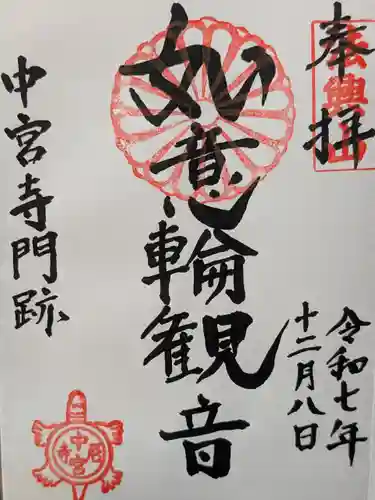 奉拝
法興山
令和七年
十二月八日
如意輪観音
中宮寺門跡
中宮寺